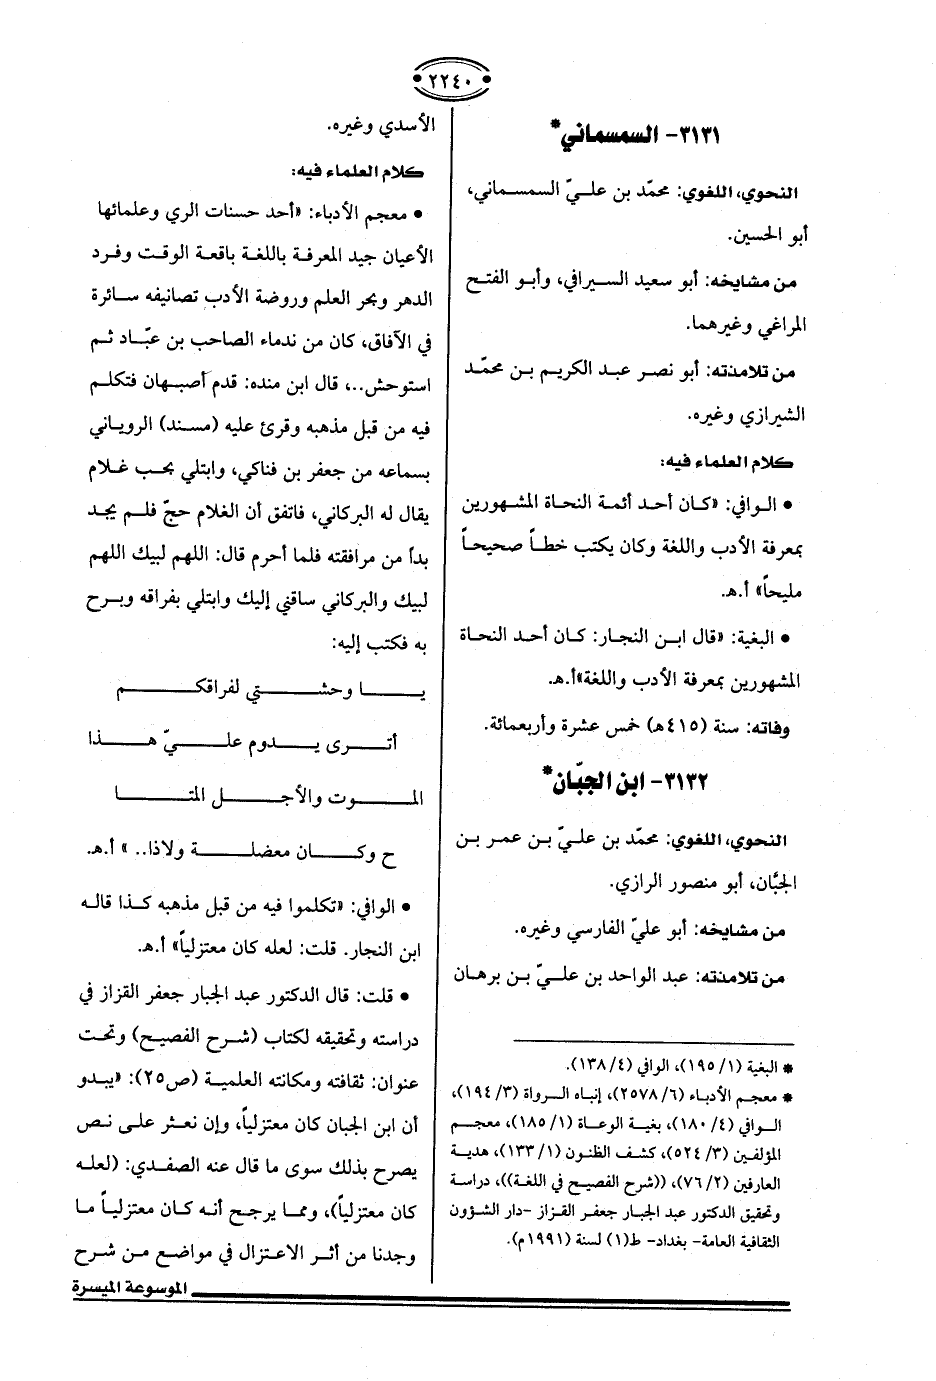 ٢٢٤٠
٣١٣١- السمسماني*
النحوي، اللغوي: محمّد بن عليّ السمسماني،
أبو الحسين.
من مشايخه: أبو سعيد السيرافي، وأبو الفتح
المراغي وغيرهما.
من تلامذته: أبو نصر عبد الكريم بن محمّد
الشيرازي وغيره.
كلام العلماء فيه:
• الوافي: «كان أحد أئمة النحاة المشهورين
بمعرفة الأدب واللغة وكان يكتب خطاً صحيحاً
مليحاً» أ.هـ.
• البغية: «قال ابن النجار: كان أحد النحاة
المشهورين بمعرفة الأدب واللغة»أ.هـ.
وفاته: سنة (٤١٥هـ) خمس عشرة وأربعمائة.
٣١٣٢- ابن الجبّان*
النحوي، اللغوي: محمّد بن عليّ بن عمر بن
الجبَّان، أبو منصور الرازي.
من مشايخه: أبو عليّ الفارسي وغيره.
من تلامذته: عبد الواحد بن عليّ بن برهان
* البغية (١/ ١٩٥)، الوافي (٤/ ١٣٨).
* معجم الأدباء (٦/ ٢٥٧٨)، إنباه الرواة (٣/ ١٩٤)،
الوافي (٤/ ١٨٠)، بغية الوعاة (١/ ١٨٥)، معجم
المؤلفين (٣/ ٥٢٤)، كشف الظنون (١/ ١٣٣)، هدية
العارفين (٢/ ٧٦)، ((شرح الفصيح في اللغة))، دراسة
وتحقيق الدكتور عبد الجبار جعفر القزاز -دار الشؤون
الثقافية العامة- بغداد- ط(١) لسنة (١٩٩١م).
الأسدي وغيره.
كلام العلماء فيه:
• معجم الأدباء: «أحد حسنات الري وعلمائها
الأعيان جيد المعرفة باللغة باقعة الوقت وفرد
الدهر وبحر العلم وروضة الأدب تصانيفه سائرة
في الآفاق، كان من ندماء الصاحب بن عبّاد ثم
استوحش..، قال ابن منده: قدم أصبهان فتكلم
فيه من قبل مذهبه وقرئ عليه (مسند) الروياني
بسماعه من جعفر بن فناكي، وابتلي بحب غلام
يقال له البركاني، فاتفق أن الغلام حجّ فلم يجد
بداً من مرافقته فلما أحرم قال: اللهم لبيك اللهم
لبيك والبركاني ساقني إليك وابتلي بفراقه وبرح
به فكتب إليه:
يـــا وحشـــتي لفراقكـــم
أتـــرى يـــدوم علـــيّ هـــذا
المـــوت والأجـــل المتـــا
ح وكـــان معضلـــة ولاذا.. » أ.هـ.
• الوافي: «تكلموا فيه من قبل مذهبه كذا قاله
ابن النجار. قلت: لعله كان معتزلياً» أ.هـ.
• قلت: قال الدكتور عبد الجبار جعفر القزاز في
دراسته وتحقيقه لكتاب (شرح الفصيح) وتحت
عنوان: ثقافته ومكانته العلمية (ص٢٥): «يبدو
أن ابن الجبان كان معتزلياً، وإن نعثر على نص
يصرح بذلك سوى ما قال عنه الصفدي: (لعله
كان معتزلياً)، ومما يرجح أنه كان معتزلياً ما
وجدنا من أثر الاعتزال في مواضع من شرح
الموسوعة الميسرة